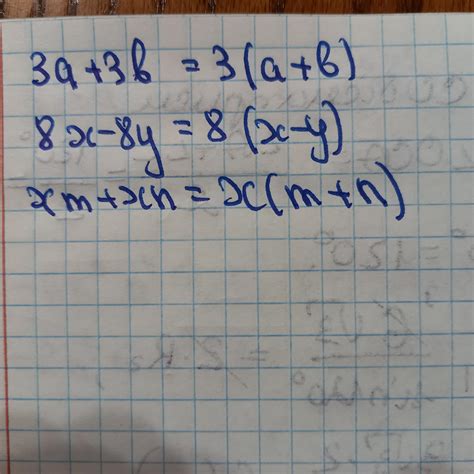 3a+3b = 3(a+b)
8x-8y = 8(x-y)
xm+xn = x(m+n)